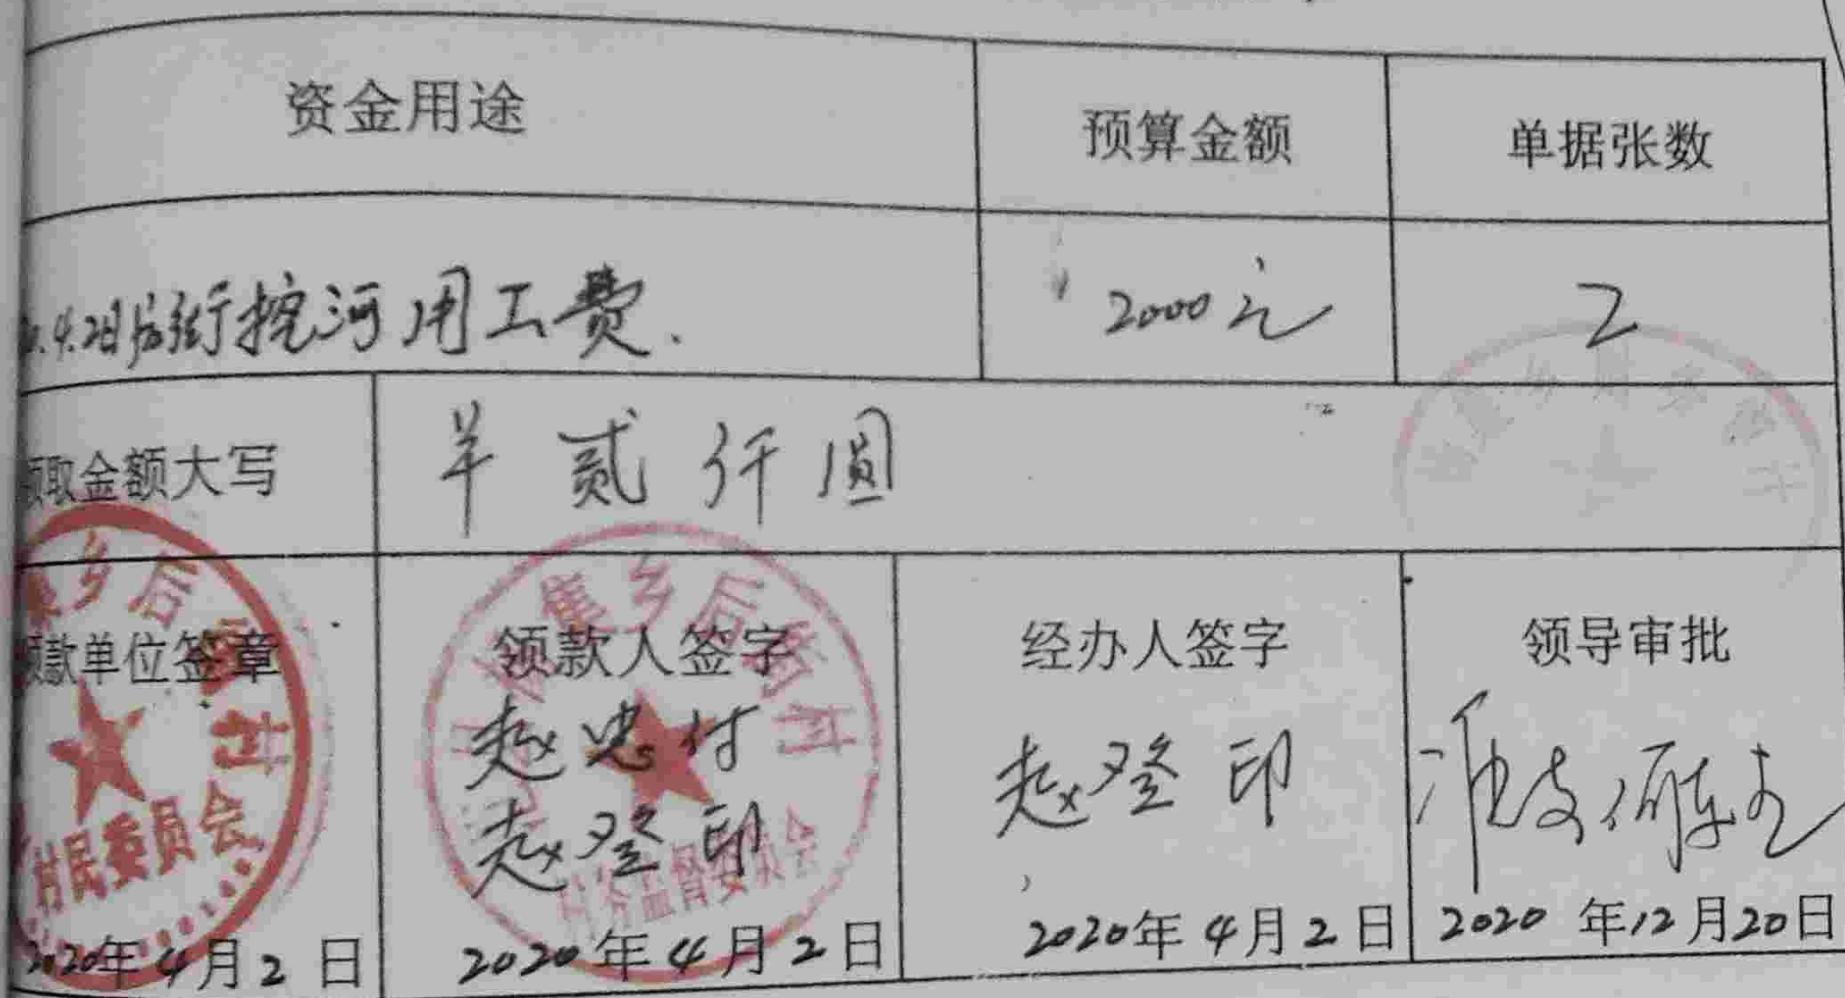 资金用途 预算金额 单据张数
.4.2日后街挖河用工费. 2000元 2
领取金额大写 羊贰仟圆
乡后
领款单位签章 领款人签字 经办人签字 领导审批
集乡后街村
村
赵忠付
赵登印 赵登印
村民委员会
村务监督委员会
2020年4月2日 2020年4月2日 2020年4月2日 2020年12月20日